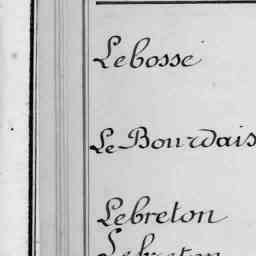 Lebosse
Le Bourdais
Lebreton
Lebreton